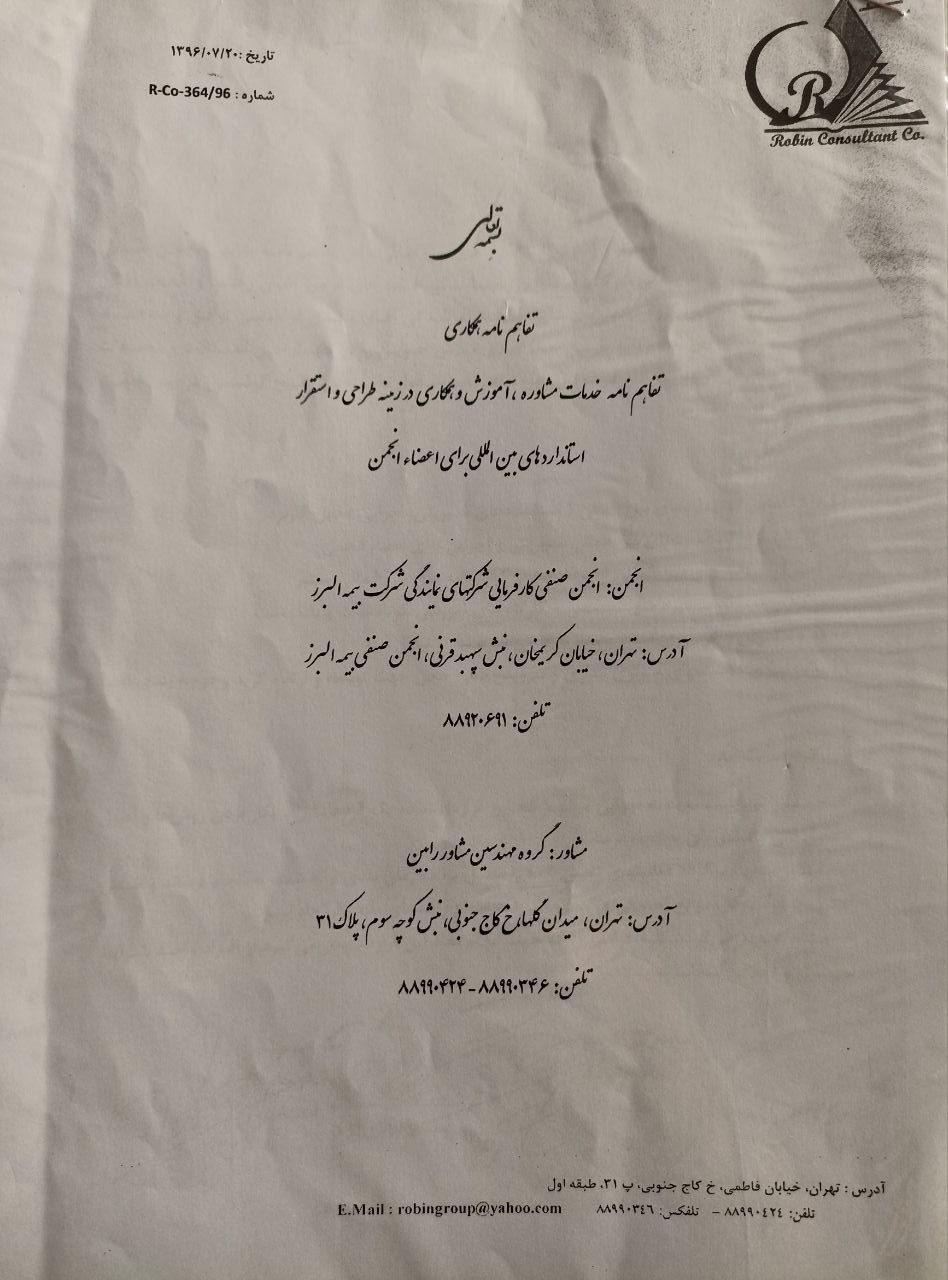 تاریخ :۱۳۹۶/۰۷/۲۰
شماره : R-Co-364/96
R
Robin Consultant Co.
بسمه تعالی
تفاهم نامه همکاری
تفاهم نامه خدمات مشاوره ،آموزش و همکاری در زمینه طراحی و استقرار
استانداردهای بین المللی برای اعضاء انجمن
انجمن: انجمن صنفی کارفرمایی شرکتهای نمایندگی شرکت بیمه البرز
آدرس: تهران، خیابان کریمخان، نبش سپهبد قرنی، انجمن صنفی بیمه البرز
تلفن: ۸۸۹۲۰۶۹۱
مشاور: گروه مهندسین مشاور رابین
آدرس: تهران، میدان گلها،خ کاج جنوبی، نبش کوچه سوم، پلاک ۳۱
تلفن: ۸۸۹۹۰۳۴۶ - ۸۸۹۹۰۴۲۴
آدرس : تهران، خیابان فاطمی، خ کاج جنوبی، پ ۳۱، طبقه اول
تلفن: ۸۸۹۹۰٤۲٤ – تلفکس: ۸۸۹۹۰۳٤٦ E.Mail : robingroup@yahoo.com